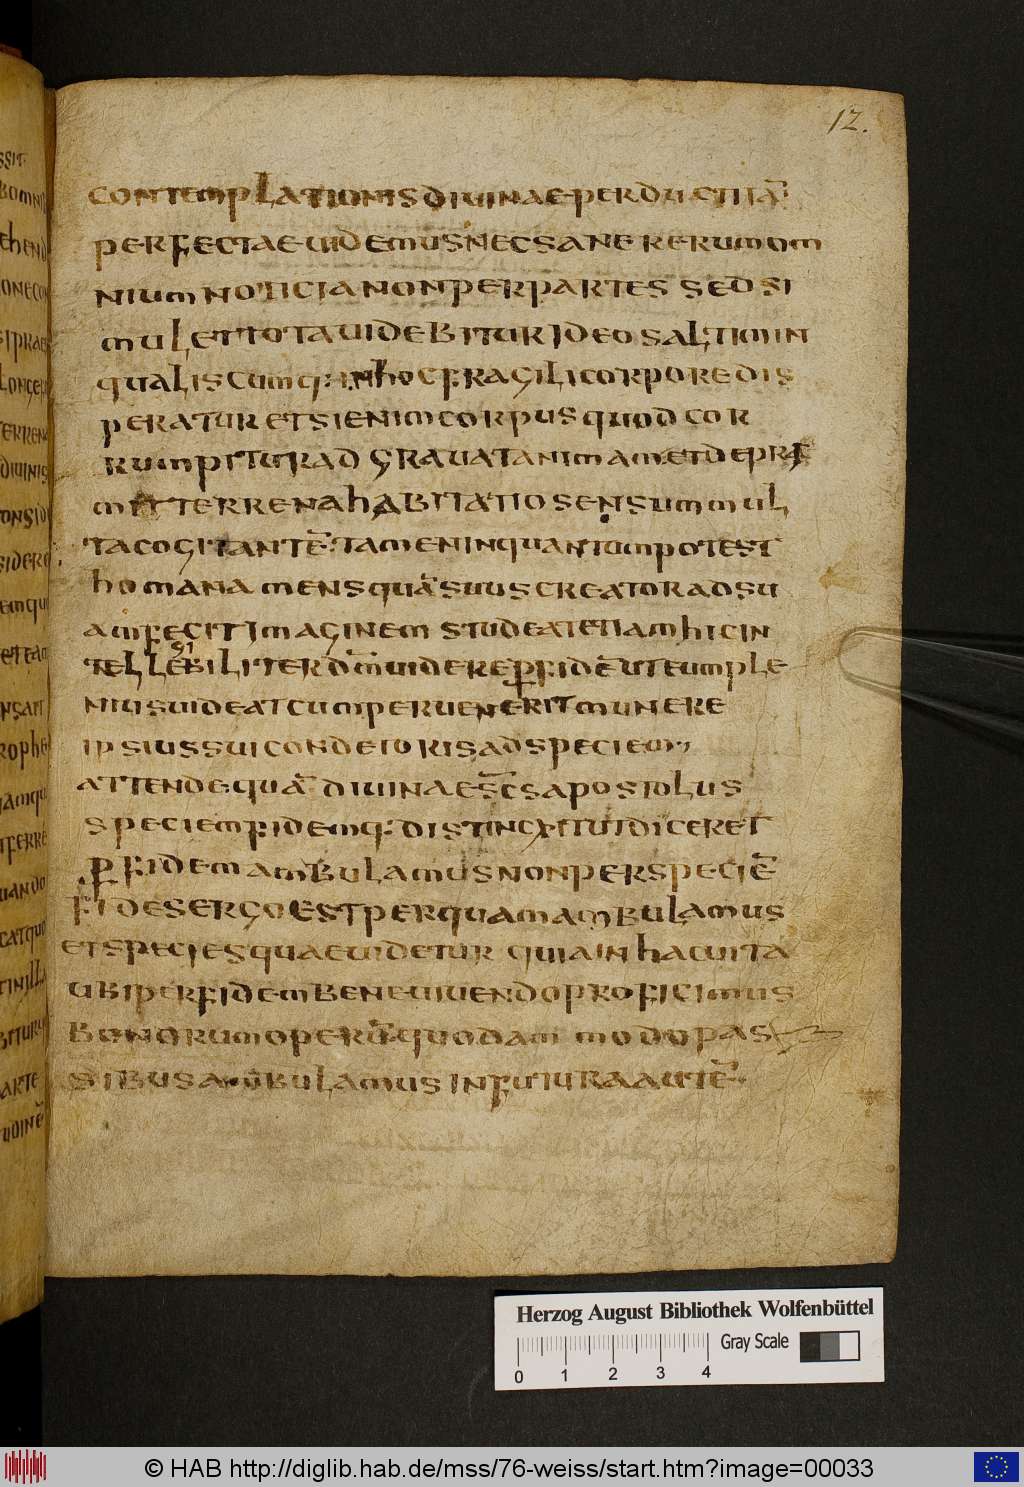 12.
CONTEMPLATIONIS DIUINAE PERDUCTI IĀ
PERFECTAE UIDEMUS NEC SANE RERUM OM
NIUM NOTICIA NON PER PARTES SED SI
MUL ET TOTA UIDEBITUR IDEO SALTIM IN
QUALISCUMQ: IN HOC FRAGILI CORPORE DIS
PERATUR ETSI ENIM CORPUS QUOD COR
RUMPITUR ADGRAUAT ANIMAM ET DEPRI
MIT TERRENA HABITATIO SENSUM MUL
TA COGITANTĒ: TAMEN IN QUANTUM POTEST
HOMANA MENS QUĀ SUUS CREATOR AD SU
AM FECIT IMAGINEM STUDEAT ETIAM HIC IN
TELLEGIBILITER DM̄ UIDERE P FIDĒ UT EUM PLE
NIUS UIDEAT CUM PERUENERIT MUNERE
IPSIUS SUI CONDETORIS AD SPECIEM
ATTENDE QUĀ DIUINAE SC̄S APOSTOLUS
SPECIEM FIDEMQ: DISTINCXIT UT DICERET
P FIDEM AMBULAMUS NON PER SPECIĒ
FIDES ERGO EST PER QUAM AMBULAMUS
ET SPECIES QUAE UIDETUR QUIA IN HAC UITA
UBI PER FIDEM BENE UIUENDO PROFICIMUS
BONORUM OPERŪ QUODAM MODO PAS
SIBUS AMBULAMUS IN FUTURA AUTĒ
Herzog August Bibliothek Wolfenbüttel
Gray Scale
0 1 2 3 4
© HAB http://diglib.hab.de/mss/76-weiss/start.htm?image=00033